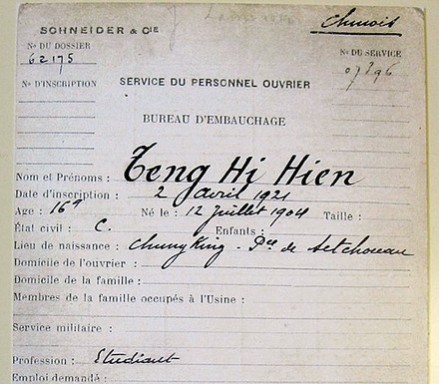 Chinois
SCHNEIDER & CIE
No DU DOSSIER
62175
No DU SERVICE
07396
No D'INSCRIPTION
SERVICE DU PERSONNEL OUVRIER
BUREAU D'EMBAUCHAGE
Nom et Prénoms : Teng Hi Hien
Date d'inscription : 2 avril 1921
Age : 16a Né le : 12 Juillet 1904 Taille :
État civil : C. Enfants :
Lieu de naissance : Chung King - Pce de Setchouan
Domicile de l'ouvrier :
Domicile de la famille :
Membres de la famille occupés à l'Usine :
Service militaire :
Profession : Etudiant
Emploi demandé :